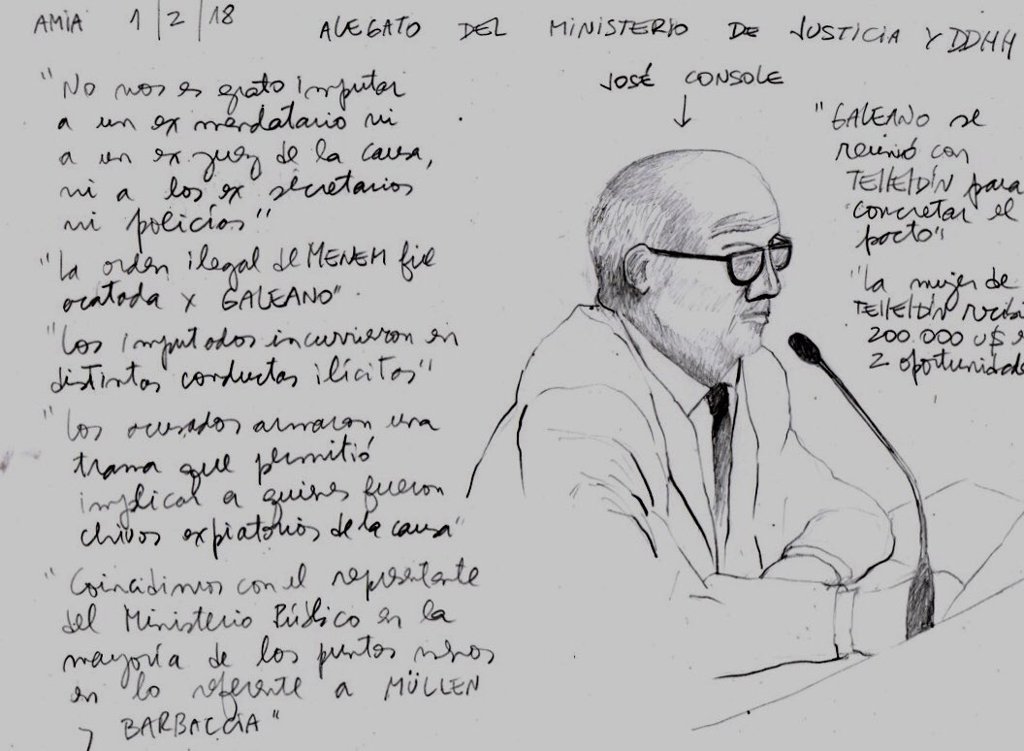 AMIA 1/2/18 ALEGATO DEL MINISTERIO DE JUSTICIA Y DDHH
JOSÉ CONSOLE
"No nos es grato imputar
a un ex mandatario ni
a un ex juez de la causa,
ni a los ex secretarios
ni policías"
"La orden ilegal de MENEM fue
acatada x GALEANO".
"Los imputados incurrieron en
distintas conductas ilícitas"
"Los acusados armaron una
trama que permitió
implicar a quienes fueron
chivos expiatorios de la causa"
"Coincidimos con el representante
del Ministerio Público en la
mayoría de los puntos menos
en lo referente a MÜLLEN
y BARBACCIA"
"GALEANO se
reunió con
TELLELDÍN para
concretar el
pacto"
"La mujer de
TELLELDÍN recibi
200.000 u$
2 oportunidade